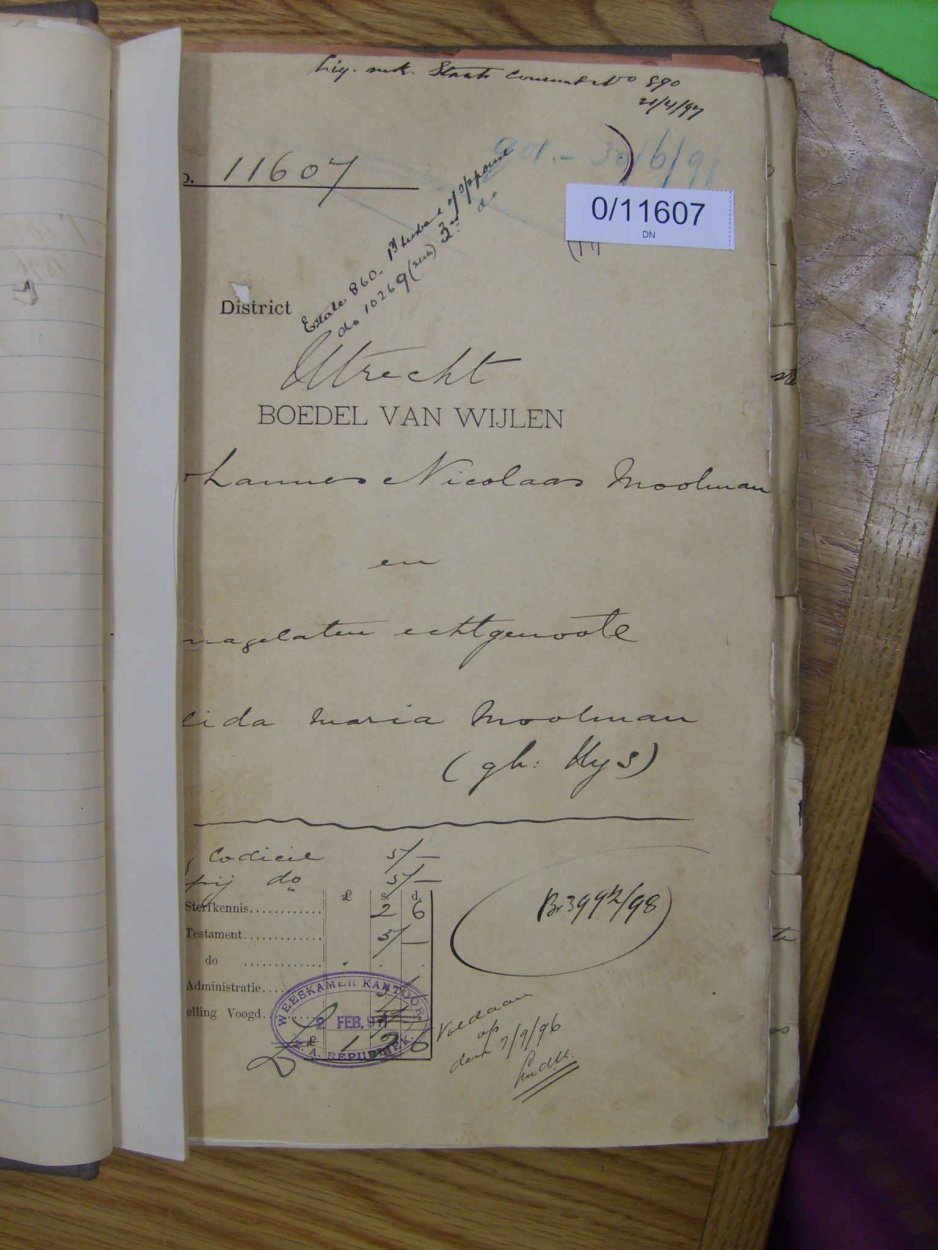 Lig. mk. Staats Courant No 890
21/4/97
o. 11607
30/6/9
0/11607
DN
Estate 860. 1st husband of spouse
do 10269 (sur) 2nd do
District
Utrecht
BOEDEL VAN WIJLEN
hannes Nicolaas Moolman
en
nagelaten echtgenoote
lida Maria Moolman
(gb: Uys)
Codicil 5/—
do 5/—
£ s. d.
Sterfkennis............ 2 6
Testament.............. 5/—
do ..............
Administratie....
elling Voogd.
WEESKAMER KANTOOR
2 FEB. 9
Z. A. REPUBLIEK
£ 1 2 6
Br 3992/98
Voldaan
op
dem 7/9/96